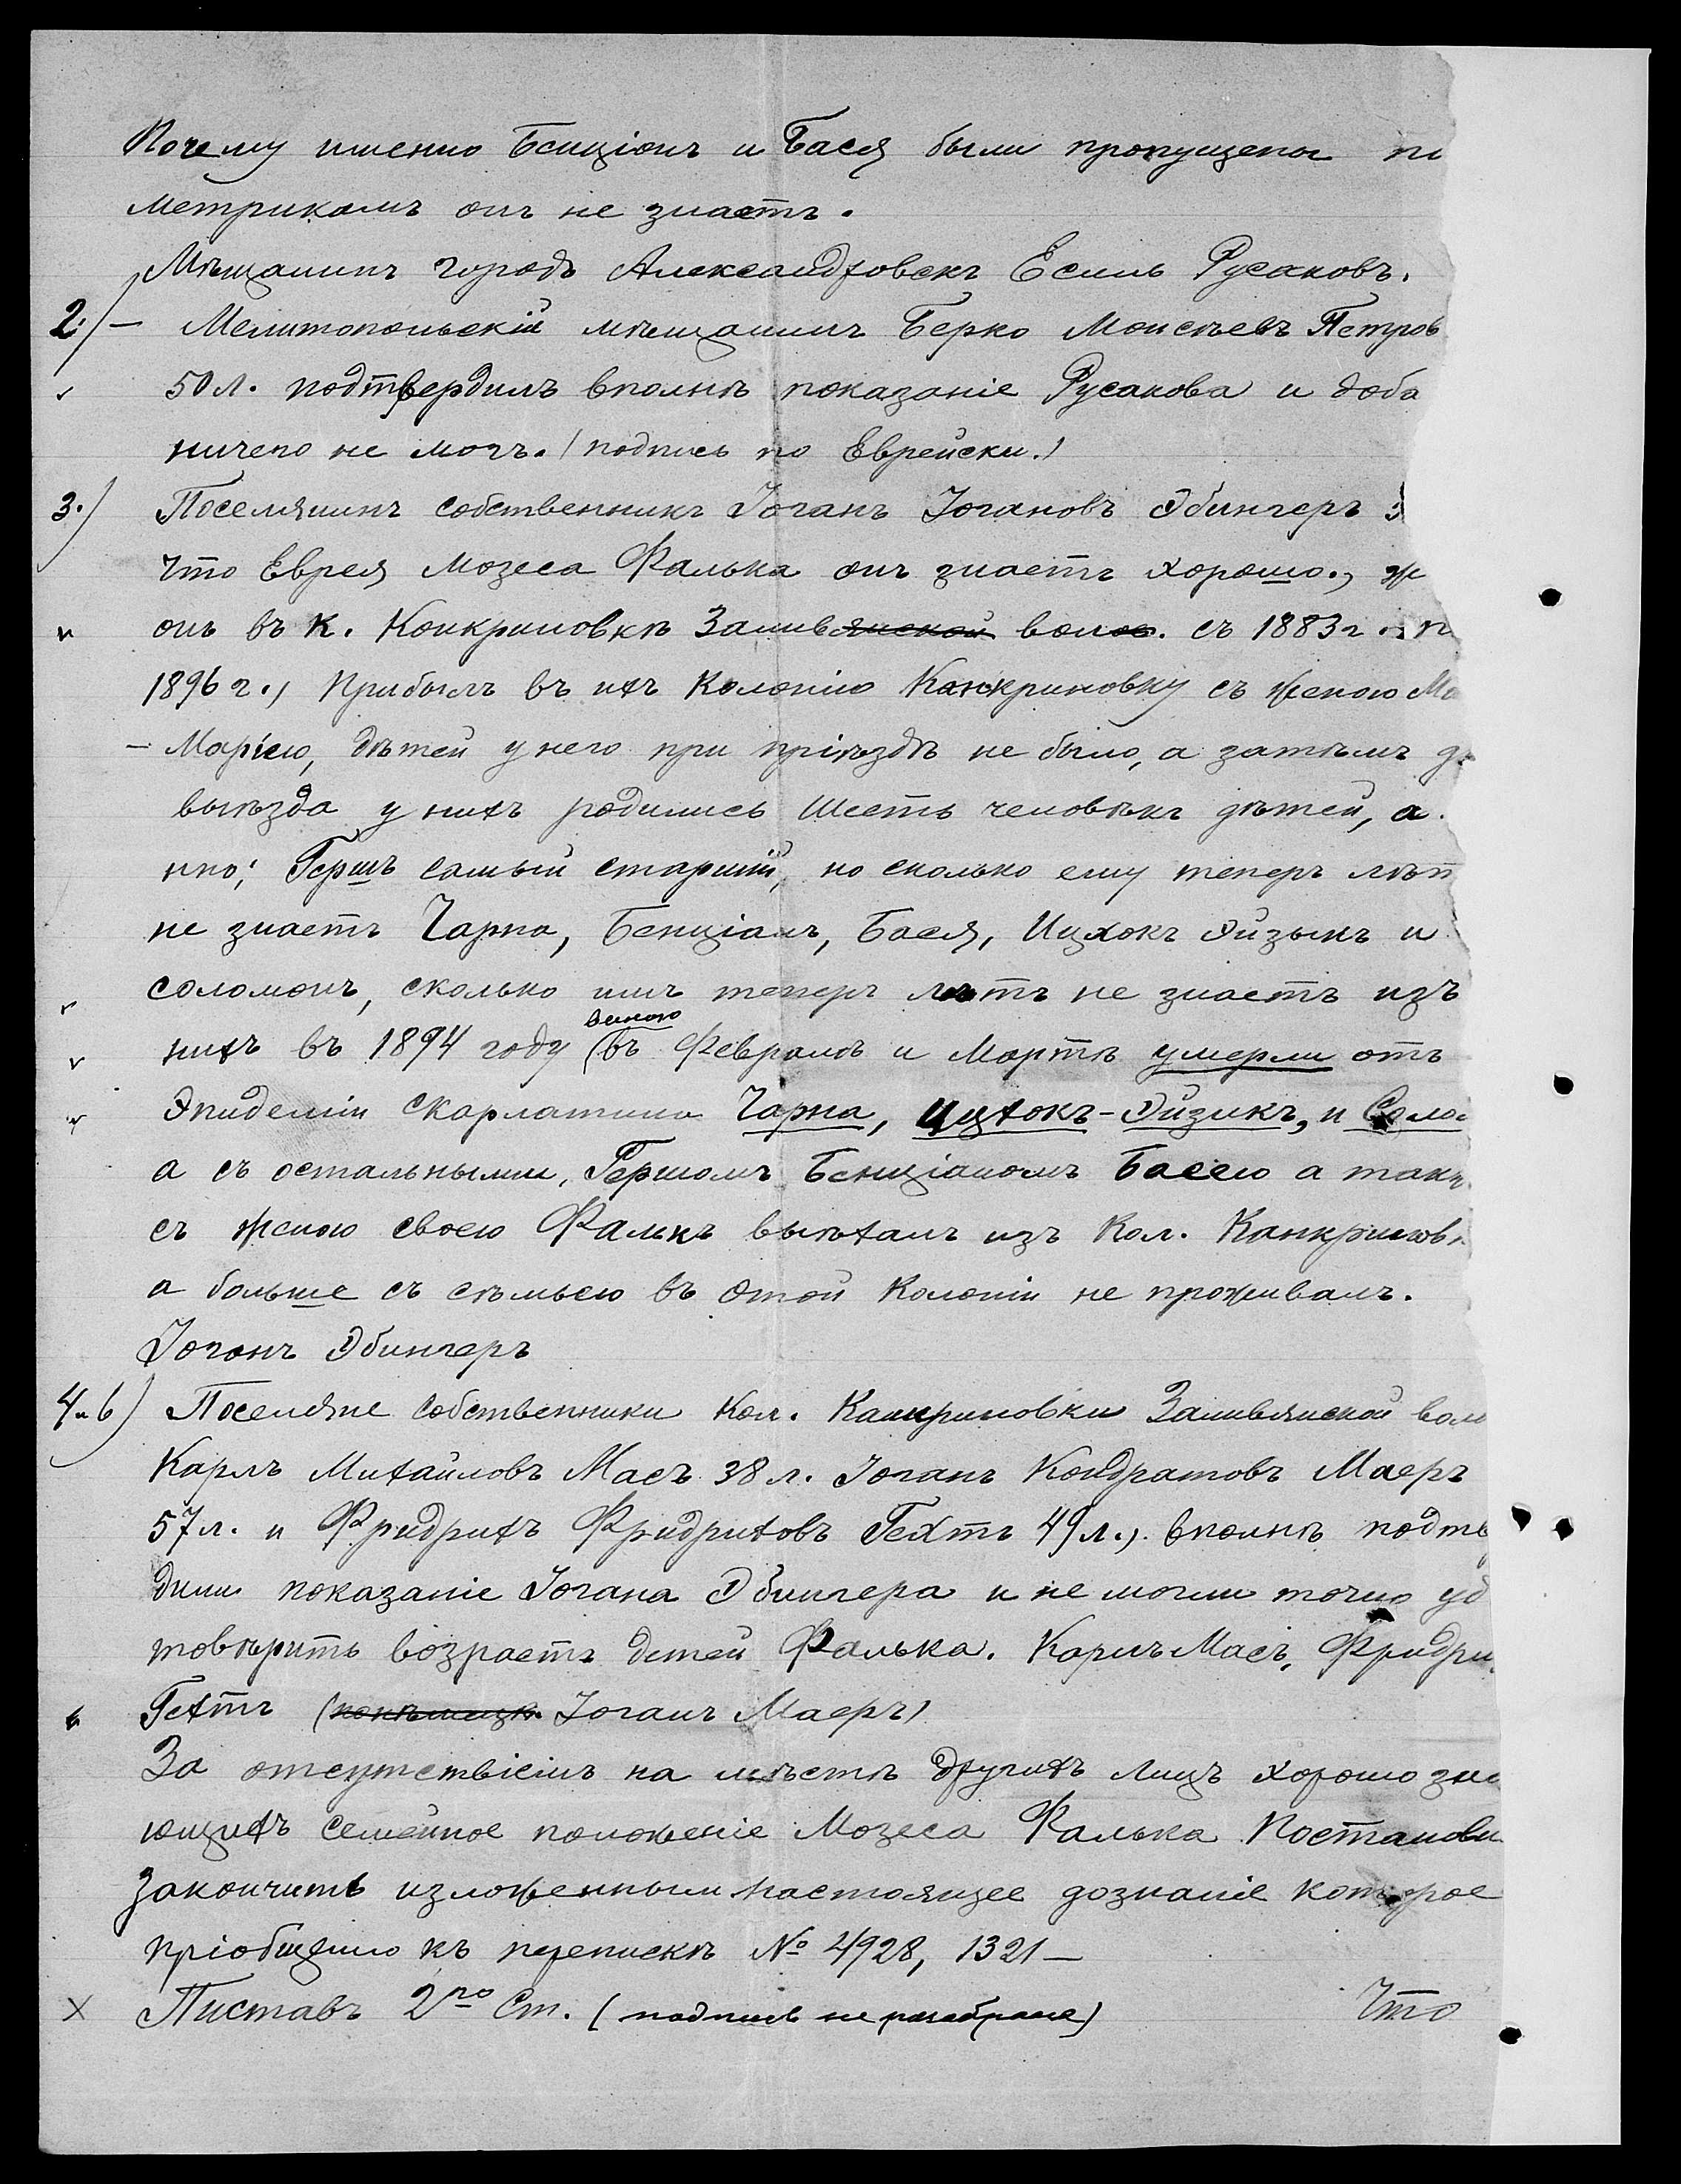 Почему именно Бенціонъ и Бася были пропущены по
метрикамъ онъ не знаетъ.
Мѣщанинъ городъ Александровскъ Есиль Русаковъ.
2.) — Мелитопольскій мѣщанинъ Берко Моисѣевъ Петров
50 л. подтвердилъ вполнѣ показаніе Русакова и доба
ничего не могъ. (подпись по Еврейски.)
3.) Поселянинъ собственникъ Іоганъ Іогановъ Эбингеръ
что Еврея Мозеса Фалька онъ знаетъ хорошо., ж
онъ въ к. Конкриновкѣ Заливянской волос. съ 1883 г. п
1896 г., Прибылъ въ ихъ Колонію Канкриновку съ женою Ма
— Маріею, дѣтей у него при пріѣздѣ не было, а затѣмъ д
выѣзда у нихъ родились шесть человѣкъ дѣтей, а
нно; Гершъ самый старшій, но сколько ему теперь лѣт
не знаетъ Чарна, Бенціанъ, Бася, Ицхокъ Эйзыкъ и
соломонъ, сколько имъ теперь лѣтъ не знаетъ изъ
нихъ въ 1894 году (въ Февралѣ и Мартѣ умерли отъ
Эпидеміи Скарлатины Чарна, Ицхокъ-Эйзикъ, и Соло
а съ остальными, Гершомъ Бенціаномъ Басею а такж
съ женою своею Фалькъ выѣхалъ изъ Кол. Канкринов
а больше съ сѣмьею въ этой Колоніи не проживалъ.
Іоганъ Эбингеръ
4 и 6) Поселяне собственники Кол. Канкриновки Заливянской вол
Карлъ Михайловъ Масъ 38 л. Іоганъ Кондратовъ Маеръ
57 л. и Фридрихъ Фридриховъ Гехтъ 49 л.,. вполнѣ подтв
дили показаніе Іогана Эбингера и не могли точно уд
товѣрить возрастъ детей Фалька. Карлъ Масъ, Фридри
Гехтъ (Іоганъ Маеръ)
За отсутствіемъ на мѣстѣ другихъ лицъ хорошо зна
ющихъ семейное положеніе Мозеса Фалька Постанови
закончить изложеннымъ настоящее дознаніе которое
пріобщено къ перепискѣ № 4928, 1321 —
X Приставъ 2го Ст. (подпись не разобрана) Что